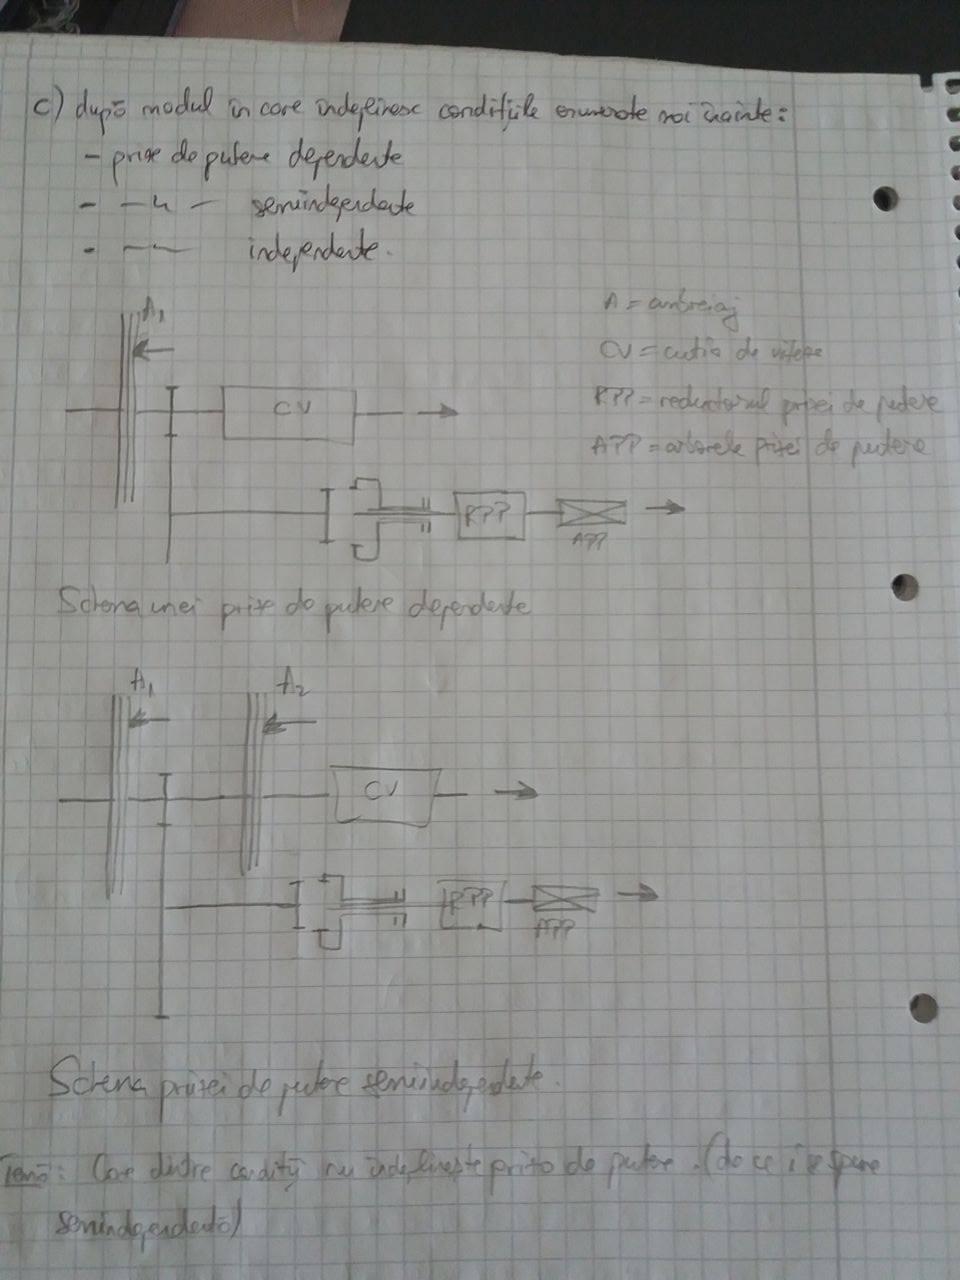 c) după modul în care îndeplinesc condițiile enumerate mai înainte:
- prize de putere dependente
- —"— semiindependente
- —"— independente.
A1
A = ambreiaj
CV = cutia de viteze
CV
RPP = reductorul prizei de putere
APP = arborele prizei de putere
RPP
APP
Schema unei prize de putere dependente
A1 A2
CV
RPP
APP
Schema prizei de putere semiindependente.
Temă: Care dintre condiții nu îndeplinește priza de putere. (de ce i se spune
semiindependentă)